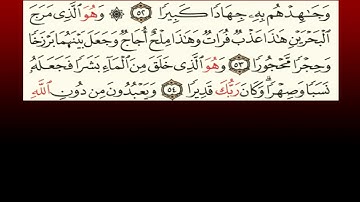 وَجَٰهِدْهُم بِهِۦ جِهَادًا كَبِيرًا ٥٢ ۞ وَهُوَ ٱلَّذِى مَرَجَ
ٱلْبَحْرَيْنِ هَٰذَا عَذْبٌ فُرَاتٌ وَهَٰذَا مِلْحٌ أُجَاجٌ وَجَعَلَ بَيْنَهُمَا بَرْزَخًا
وَحِجْرًا مَّحْجُورًا ٥٣ وَهُوَ ٱلَّذِى خَلَقَ مِنَ ٱلْمَآءِ بَشَرًا فَجَعَلَهُۥ
نَسَبًا وَصِهْرًا ۗ وَكَانَ رَبُّكَ قَدِيرًا ٥٤ وَيَعْبُدُونَ مِن دُونِ ٱللَّهِ